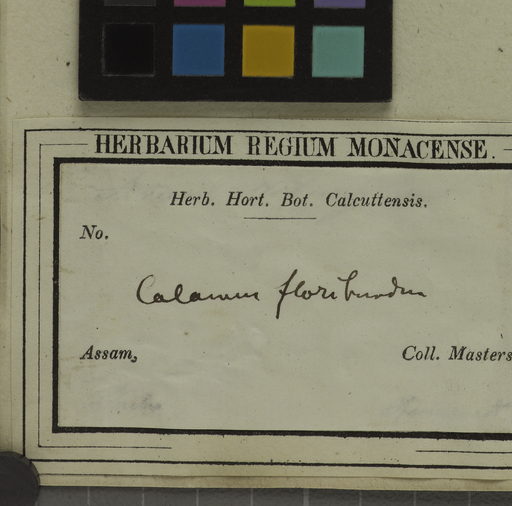 HERBARIUM REGIUM MONACENSE.
Herb. Hort. Bot. Calcuttensis.
No.
Calamus floribundus
Assam, Coll. Masters